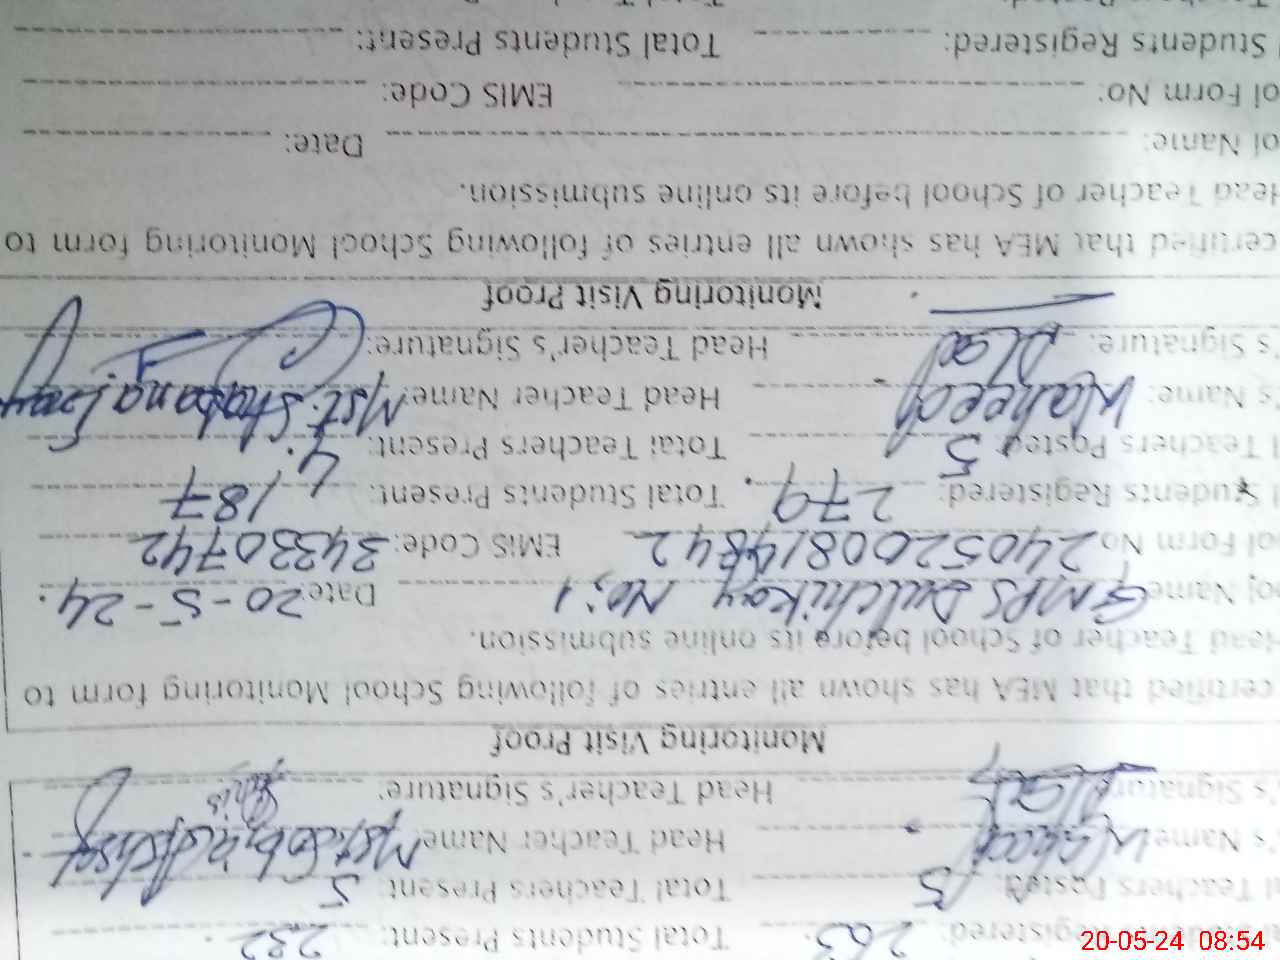 Registered: 263. Total Students Present: 232.
Teachers Posted: 5 Total Teachers Present: 5
's Name: Waheed Head Teacher Name: Mst.
's Signature: Head Teacher's Signature:
Monitoring Visit Proof
certified that MEA has shown all entries of following School Monitoring form to
Head Teacher of School before its online submission.
ol Name: GMPS Dulchikay No: 1 Date: 20-5-24.
ol Form No: EMIS Code: 34330742
Students Registered: 279. Total Students Present: 187
l Teachers Posted: 5 Total Teachers Present: 4.
's Name: Waheed Head Teacher Name: Mst. Shabana
's Signature: Head Teacher's Signature:
Monitoring Visit Proof
certified that MEA has shown all entries of following School Monitoring form to
Head Teacher of School before its online submission.
ol Name: Date:
ol Form No: EMIS Code:
l Students Registered: Total Students Present:
20-05-24 08:54